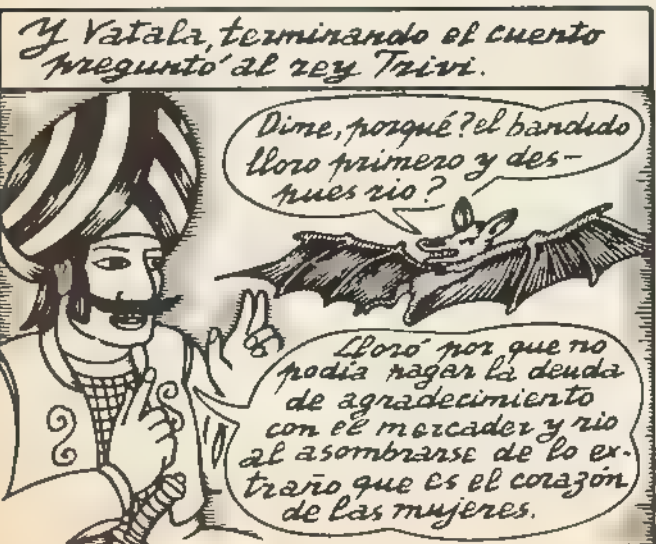 Y Vatala, terminando el cuento
preguntó al rey Trivi.
Dime, porqué? el bandido
lloro primero y des-
pues rio?
Lloró por que no
podia pagar la deuda
de agradecimiento
con el mercader y rio
al asombrarse de lo ex-
traño que es el corazón
de las mujeres.